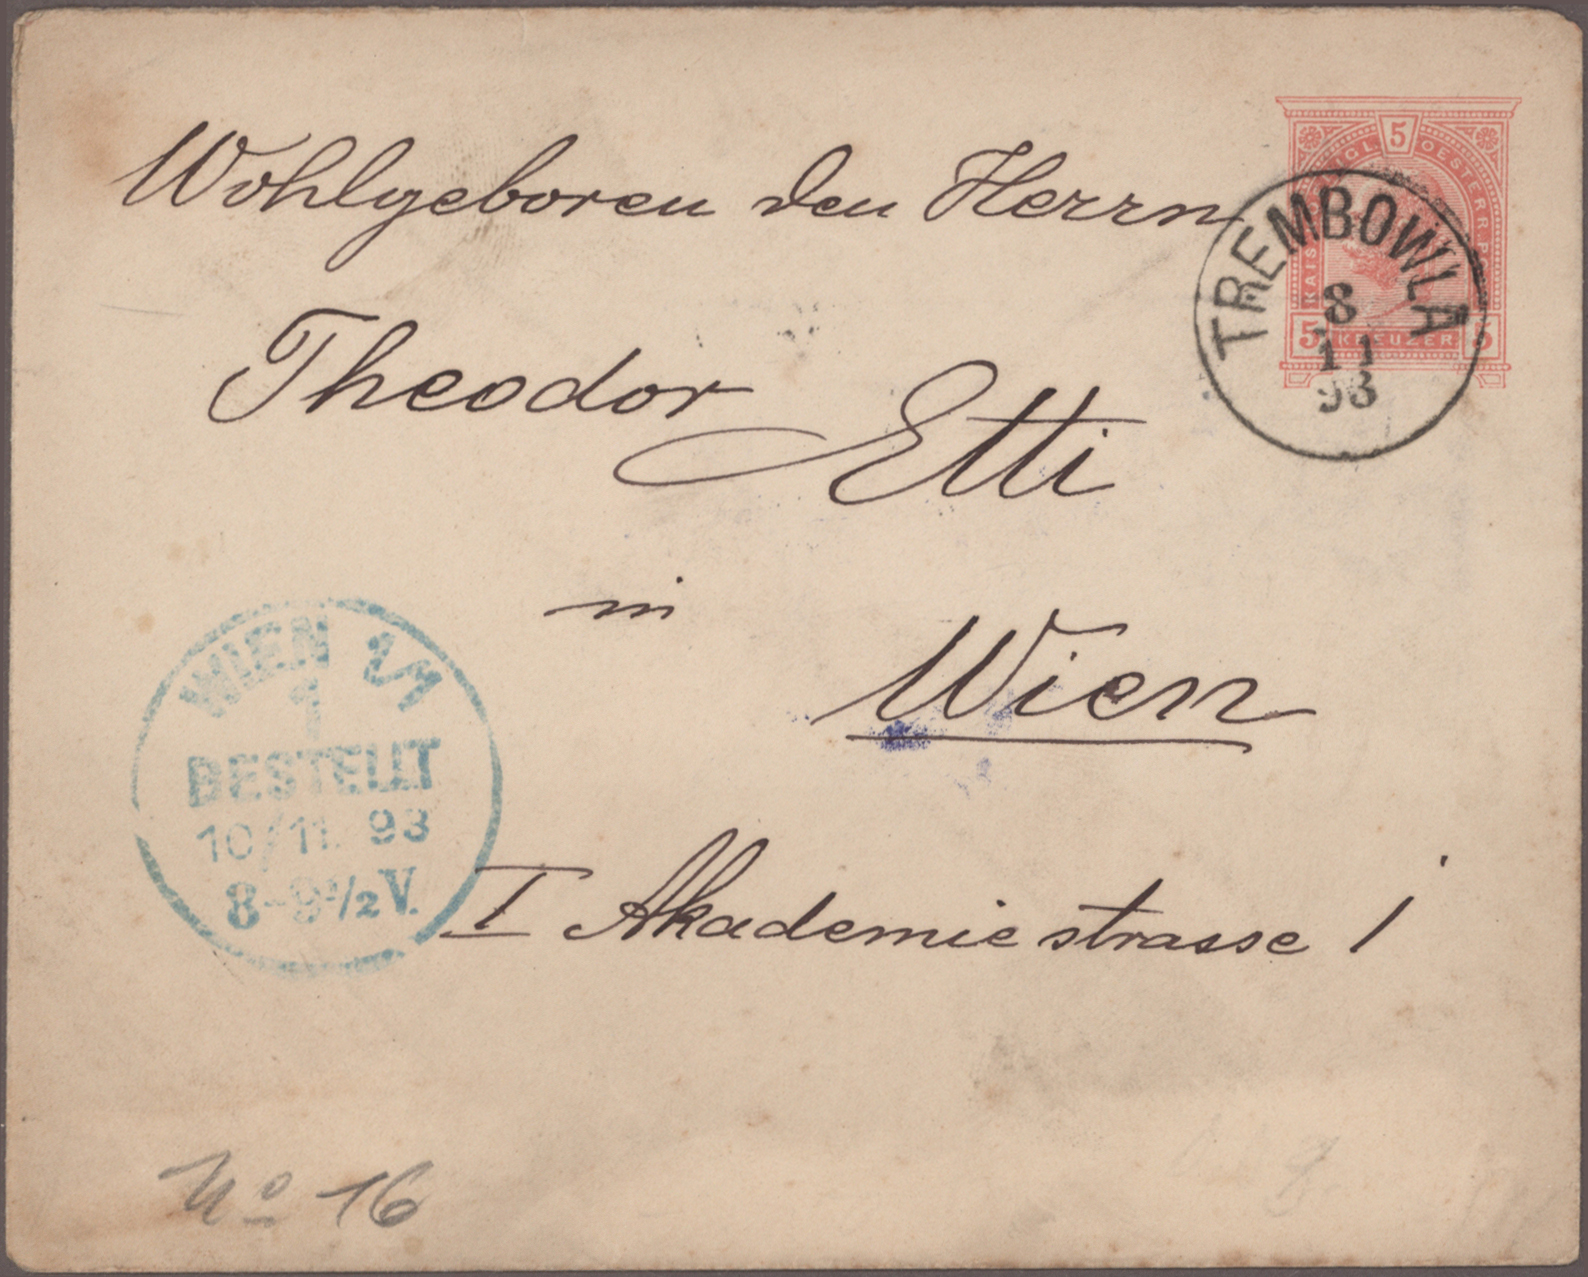 Wohlgeboren den Herrn
Theodor Etti
in
Wien
I Akademiestrasse 1
No 16
5
KAIS KÖNIGL OESTERR PO
5 KREUZER 5
TREMBOWLA
8
11
93
WIEN 1/1
1
BESTELLT
10/11. 93
8-9½V.